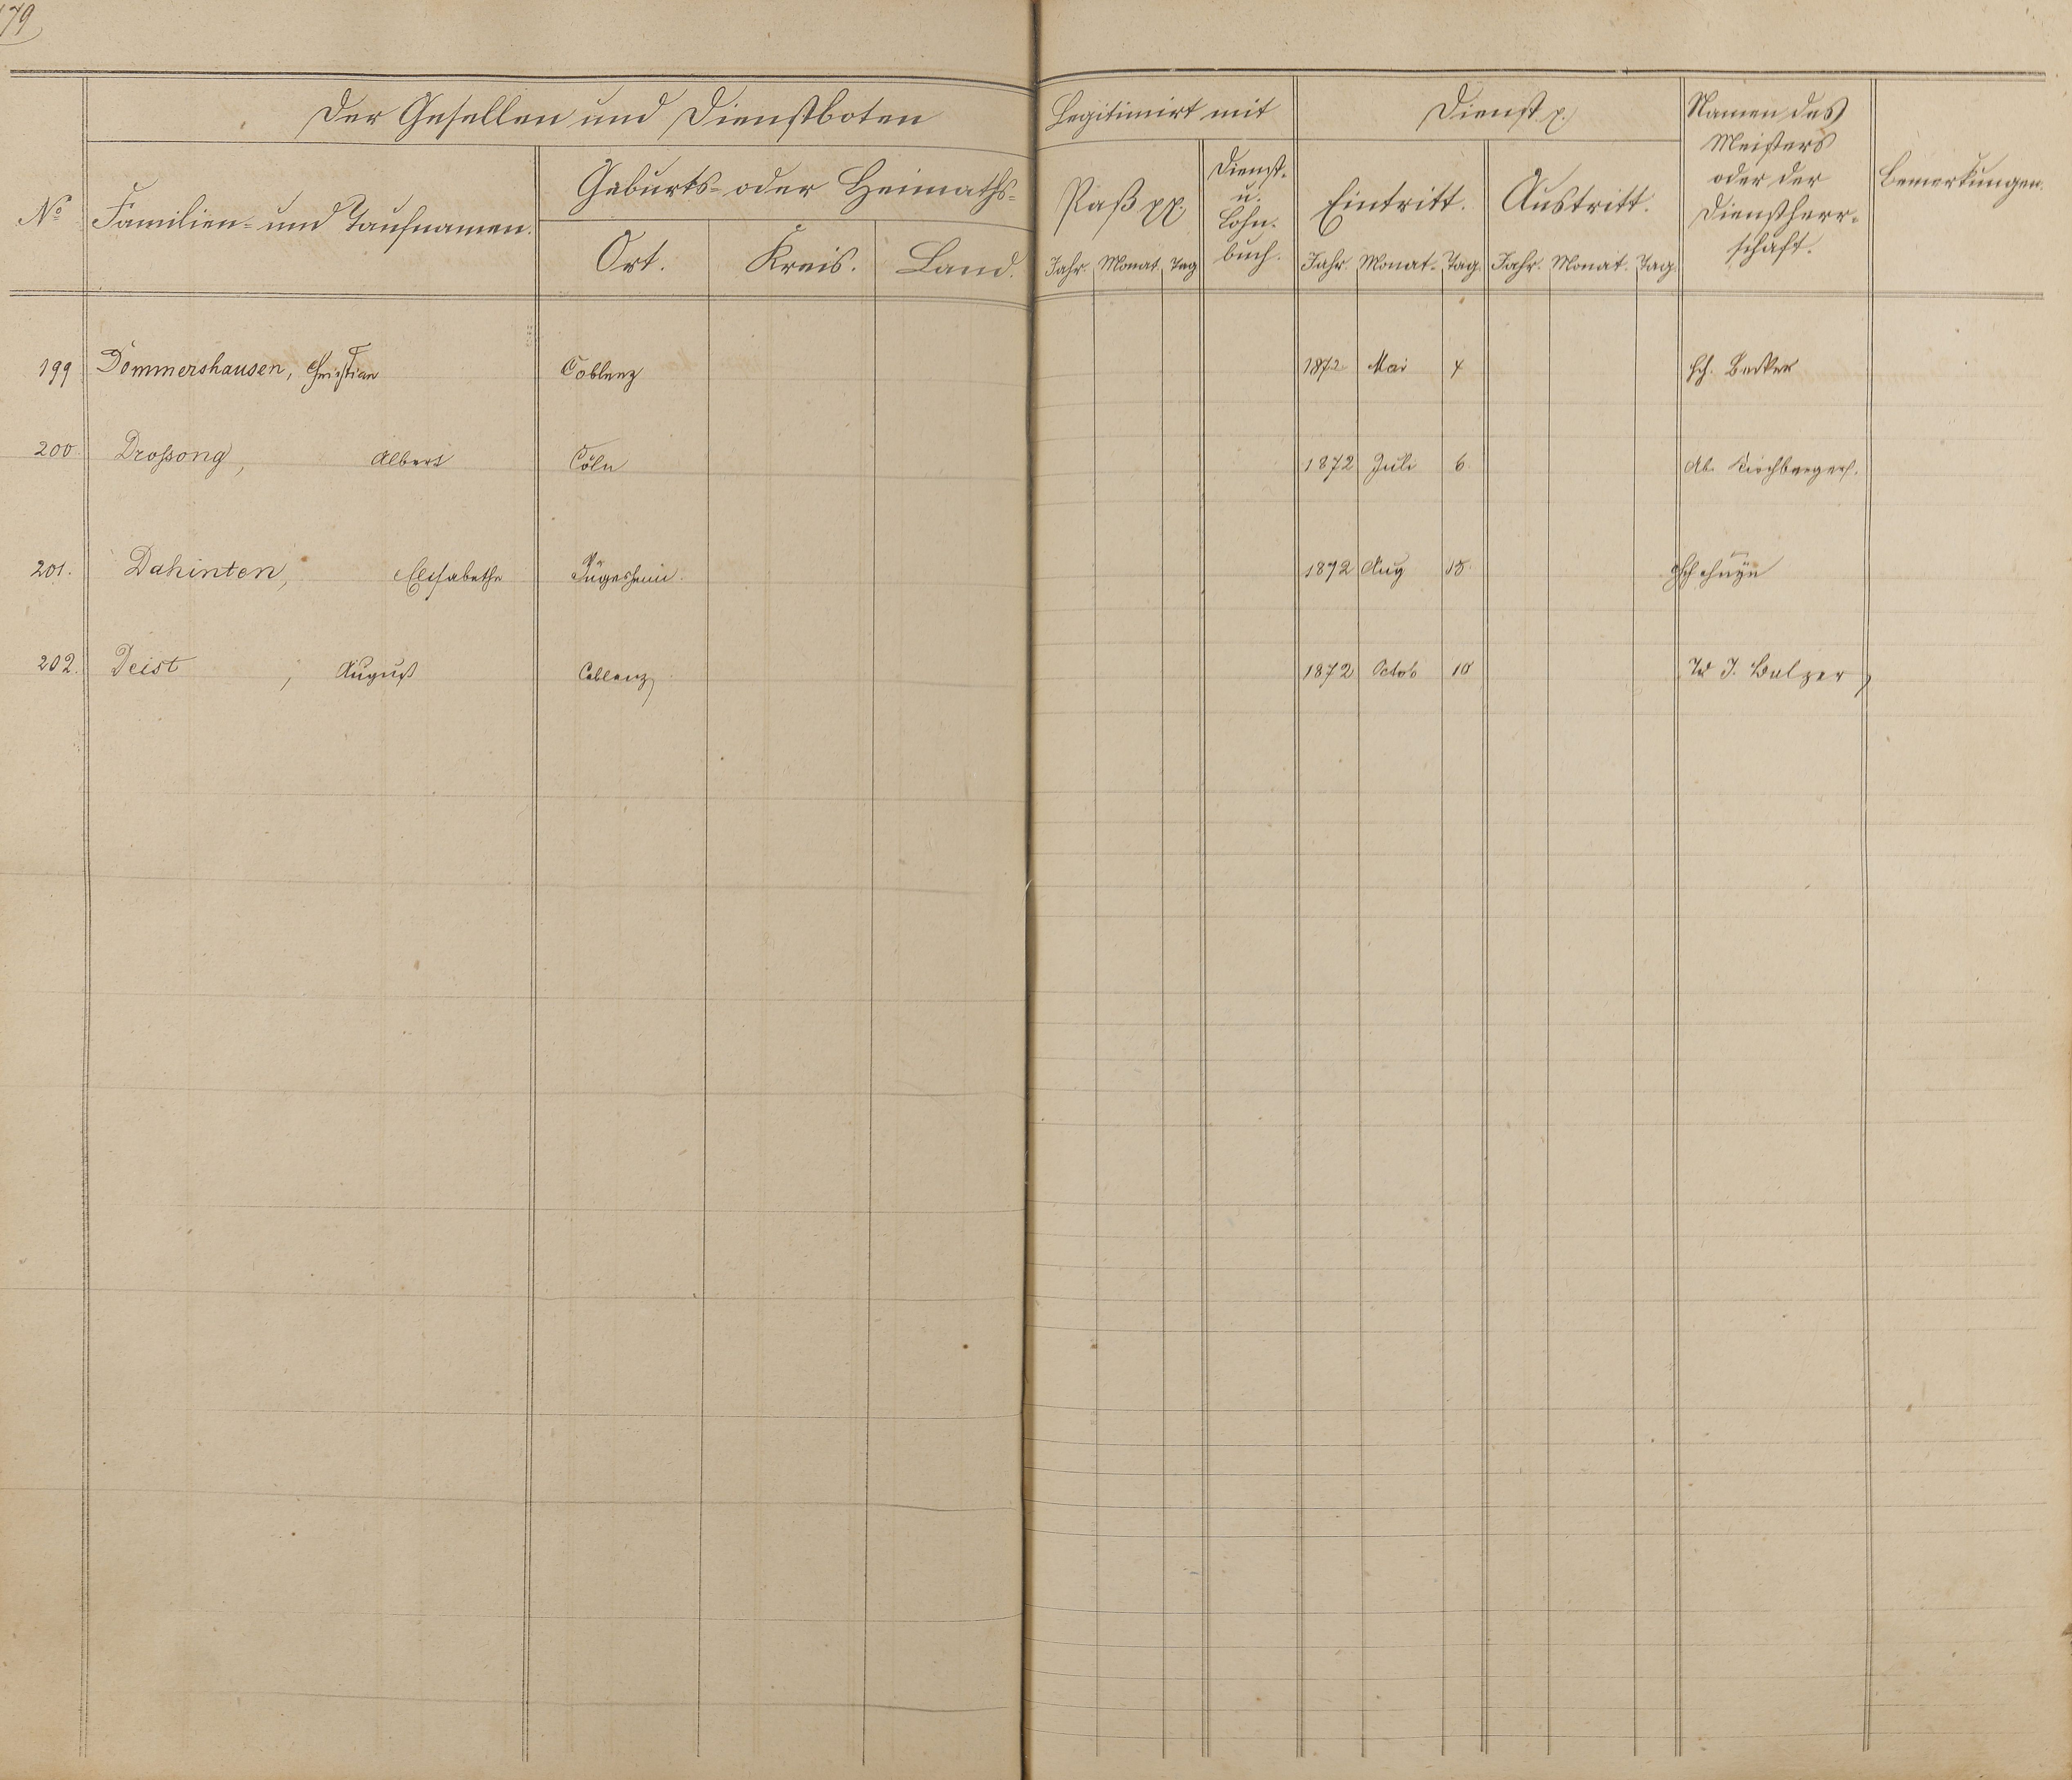 179
Der Gesellen und Dienstboten
Legitimirt mit
Dienst p.
Namen des Meisters oder der Dienstherrschaft.
Bemerkungen.
No
Familien- und Taufnamen.
Geburts- oder Heimaths-
Ort.
Kreis.
Land.
Paß pp.
Jahr. Monat. Tag
Dienst- u. Lohn- buch.
Eintritt.
Jahr. Monat. Tag.
Austritt.
Jahr. Monat. Tag.
199 Dommershausen, Christian Coblenz 1872 Mai 4 Becker
200 Droßong, Albert Cöln 1872 Juli 6. Kirchberger
201. Dahinten, Elisabetha 1872 Aug 15.
202. Deist, August Coblenz 1872 Octob 10 J. Balzer